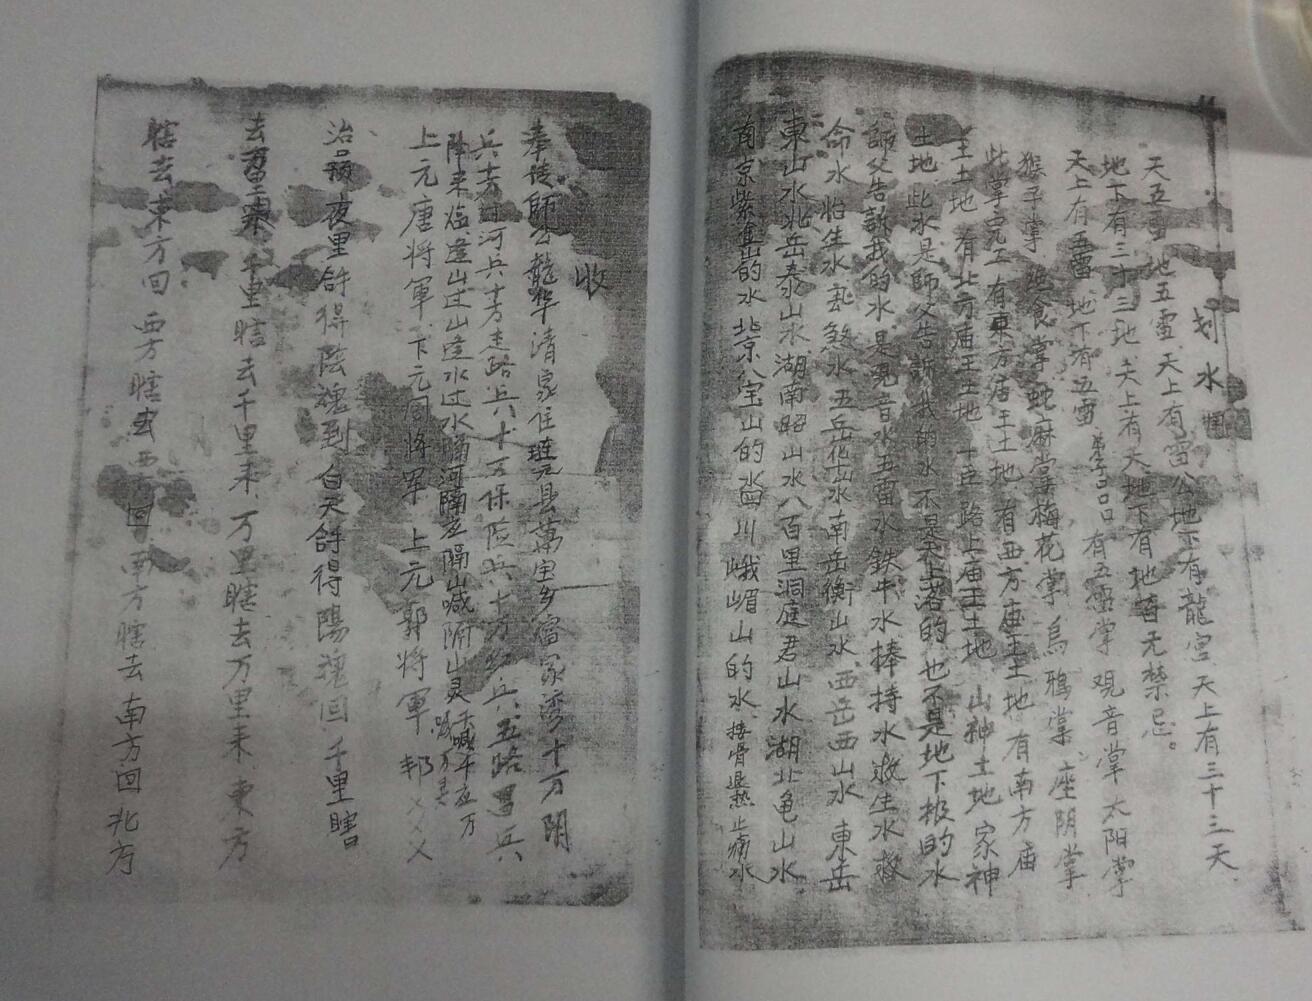 划水
天五雷 地五雷 天上有雷公地下有龍宮 天上有三十三天
地下有三十三地 天上有天地下有地 百无禁忌。
天上有五雷 地下有五雷 弟子口口 有五雷掌 观音掌 太阳掌
猴子掌 蛇麻掌 梅花掌 烏鴉掌 座阴掌
此掌完工 有東方庙王土地 有西方庙王土地 有南方庙
王土地 有北方庙王土地 十五路上庙王土地 山神土地 家神
土地 此水是師父告訴我的水 不是天上落的 也不是地下板的水
師父告訴我的水 是观音水 五雷水 鉄牛水 捧持水 救生水 救
命水 煞水 五岳华山水 南岳衡山水 西岳西山水 東岳
東山水 北岳泰山水 湖南昭山水 八百里洞庭君山水 湖北龟山水
南京紫金山的水 北京八宝山的水 四川峨嵋山的水 接骨退熱止痛水
收
奉徒師公龍华清 家住琏元县萬宝乡 湾 十万阴
兵 十万过河兵 十万走路兵 十五保险兵 十万 兵 五路 兵
降来临 逢山过山 逢水过水 隔河 隔山喊 隔山灵 喊千应万 喊万灵
上元唐将軍 下元周将军 上元郭将軍 邦×××
治 夜里 得陰魂到 白天 得陽魂回 千里瞎
去 千里瞎去千里来 万里瞎去万里来 東方
瞎去東方回 西方瞎去西 回 南方瞎去南方回 北方